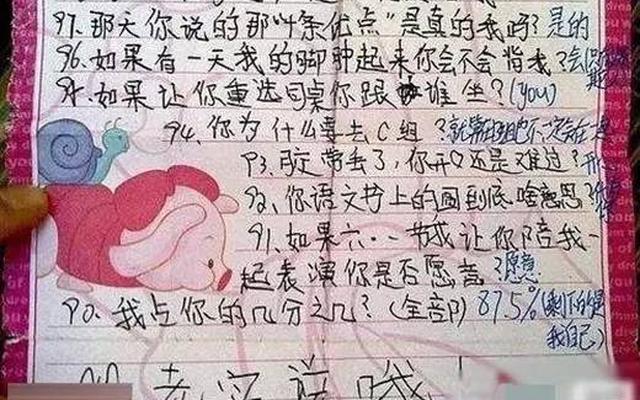 97.那天你说的那"4条优点"是真的我吗?是的
96.如果有一天我的脚肿起来你会不会背我?会
95.如果让你重选同桌你跟谁坐?(you)
94.你为什么要去C组?就算在C组也不一定在一起
93.我走丢了,你开心还是难过?
92.你语文书上的图到底啥意思?
91.如果六·一节我让你陪我一
起表演你是否愿意?愿意
90.我占你的几分之几?(全部)87.5%(剩下的是
我自己)
老实说哦